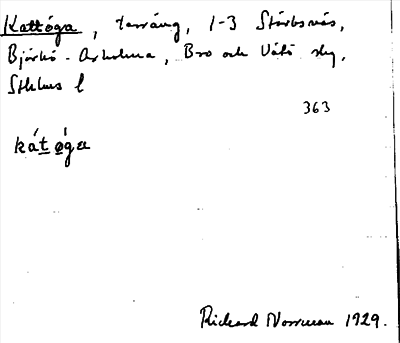 Kattöga, terräng, 1-3 Störbsnäs,
Björkö-Arholma, Bro och Vätö skg,
Sthlms l
363
kát ø̀ga
Rickard Norrman 1929.